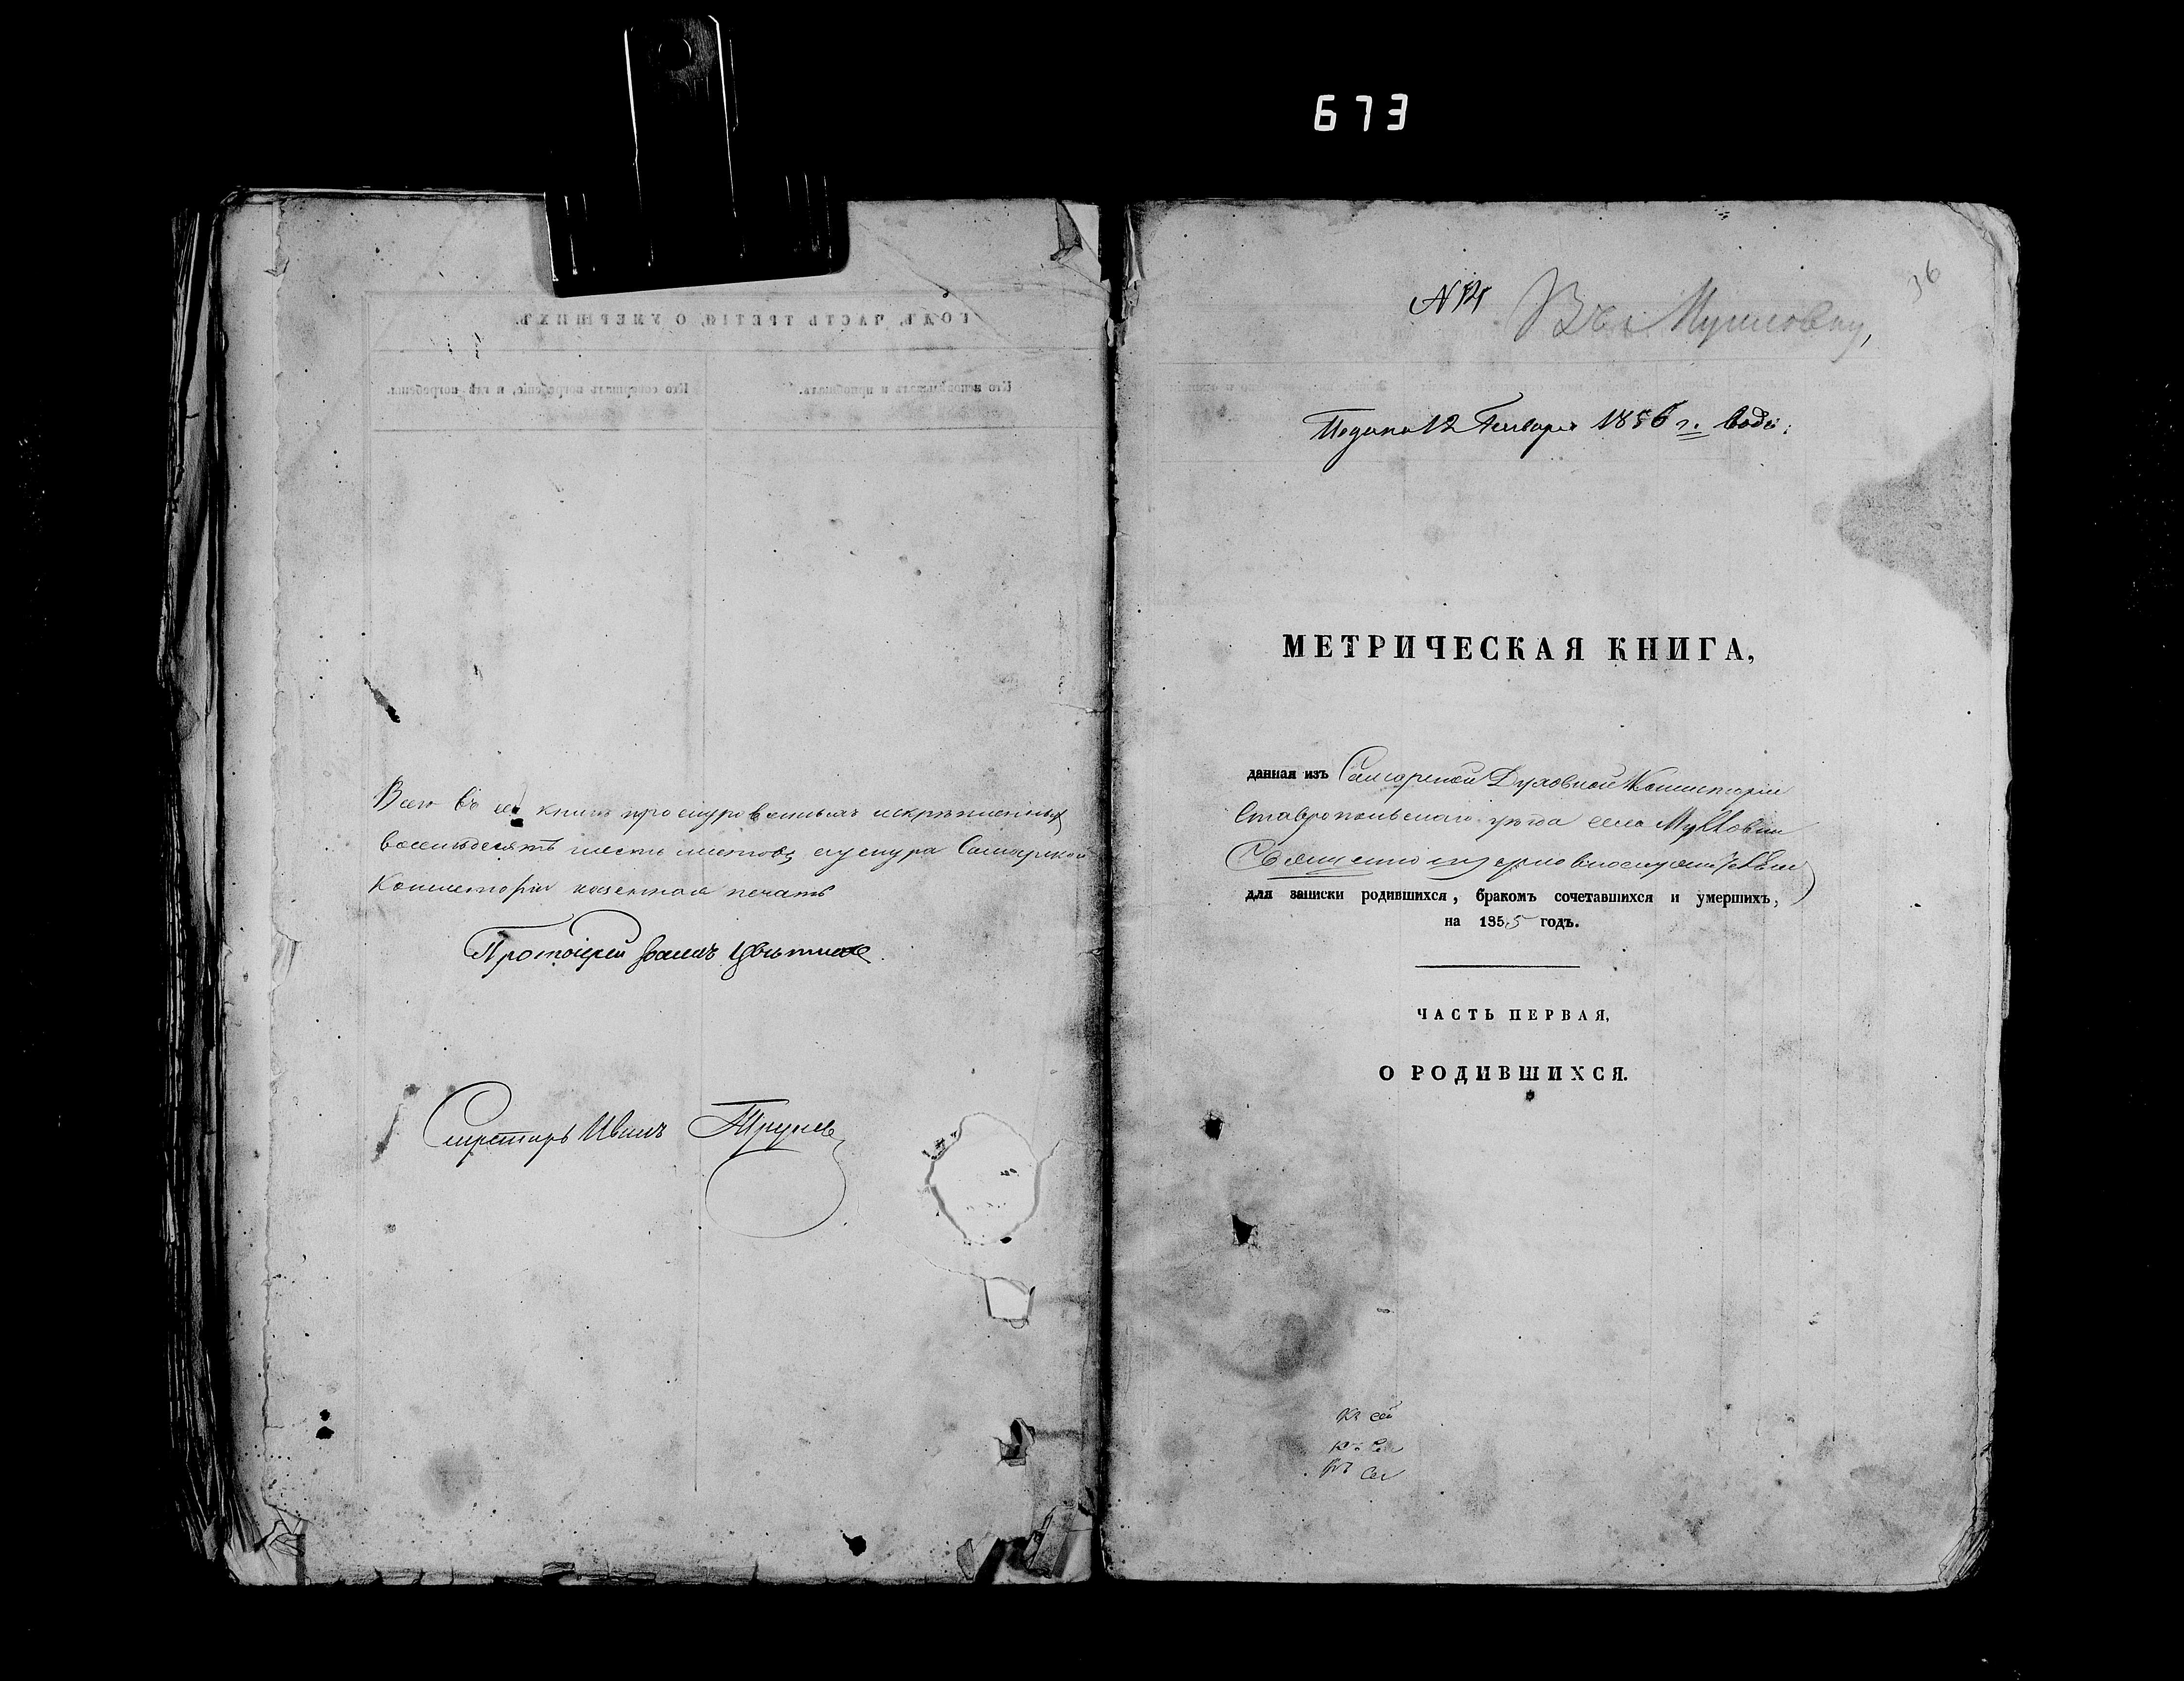 673
Всего въ сей книгѣ прошнурованныхъ искрѣпленныхъ
восемьдесятъ шесть листовъ ушнура Самарской
Консисторіи казенная печать
Протоіерей Іоаннъ Цвѣтковъ.
Секретарь Иванъ
36
N
Въ Мулловку,
Подана 12 Января 1856 г.
МЕТРИЧЕСКАЯ КНИГА,
данная изъ Самарской Духовной Консисторіи
Ставропольскаго уѣзда села Мулловки
Священноцерковнослужителямъ
для записки родившихся, бракомъ сочетавшихся и умершихъ,
на 1855 годъ.
ЧАСТЬ ПЕРВАЯ,
О РОДИВШИХСЯ.
ГОДЪ, ЧАСТЬ ТРЕТІЯ, О УМЕРШИХЪ.
Кто исповѣдывалъ и пріобщалъ.
Кто совершалъ погребеніе, и гдѣ погребены.